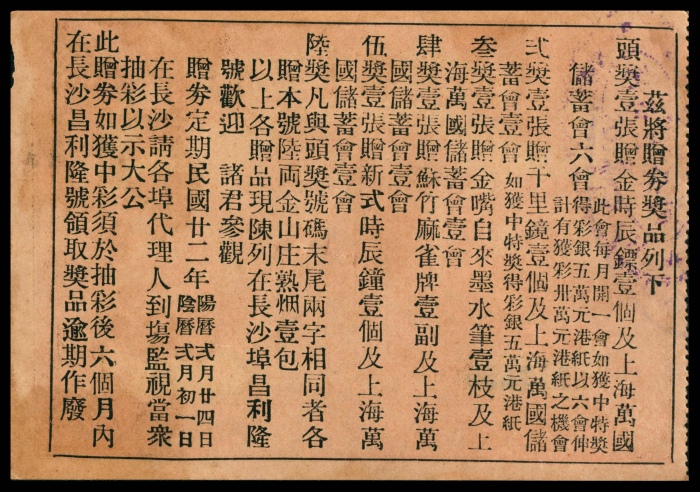 茲將贈券獎品列下
頭獎壹張贈金時辰鏢壹個及上海萬國
儲蓄會六會
此會每月開一會如獲中特獎
得彩銀五萬元港紙以六會伸
計有獲彩卅萬元港紙之機會
弍獎壹張贈千里鏡壹個及上海萬國儲
蓄會壹會 如獲中特獎得彩銀五萬元港紙
叁獎壹張贈金嘴自來墨水筆壹枝及上
海萬國儲蓄會壹會
肆獎壹張贈蘇竹麻雀牌壹副及上海萬
國儲蓄會壹會
伍獎壹張贈新式時辰鐘壹個及上海萬
國儲蓄會壹會
陸獎凡與頭獎號碼末尾兩字相同者各
贈本號陸両金山庄熟烟壹包
以上各贈品現陳列在長沙埠昌利隆
號歡迎 諸君參觀
贈券定期民國廿二年
陽曆 弍月廿四日
陰曆 弍月初一日
在長沙請各埠代理人到塲監視當衆
抽彩以示大公
此贈券如獲中彩須於抽彩後六個月內
在長沙昌利隆號領取獎品逾期作廢